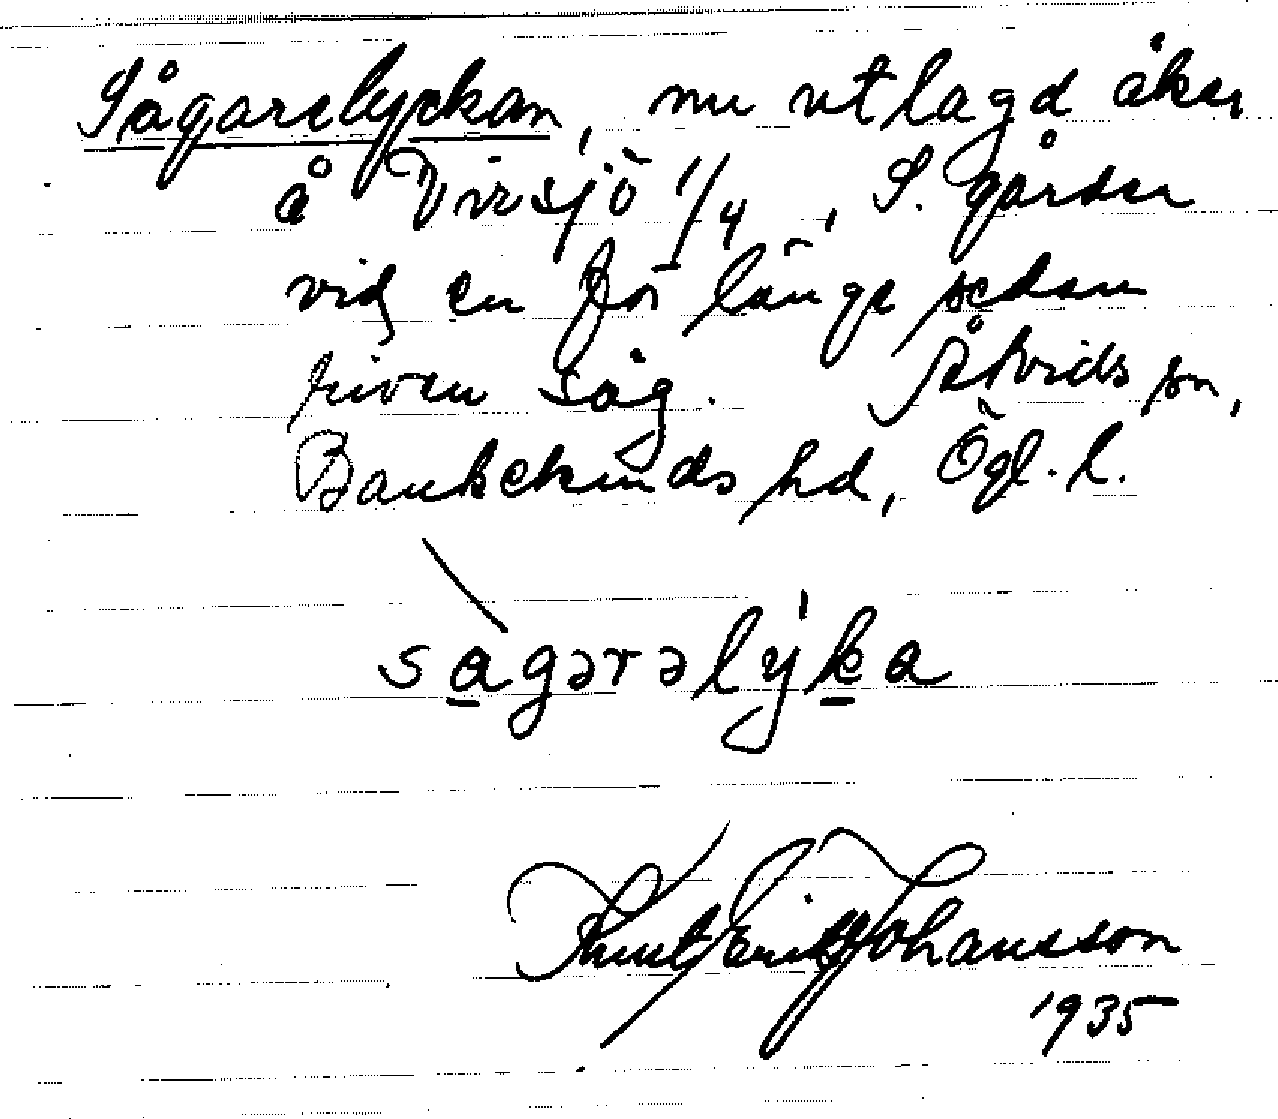 Sågarelyckan, nu utlagd åker
å Virsjö 1/4, S. gården
vid en för länge sedan
riven såg. Åtvids sn,
Bankekinds hd, Ögl. l.
sagərəlýka
Knut Erik Johansson
1935